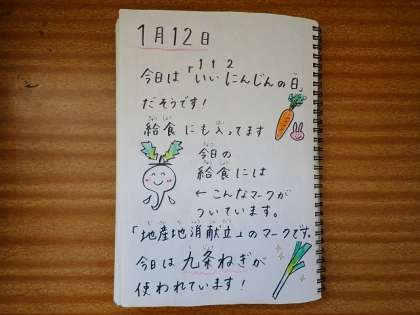 1月12日
1 1 2
今日は「いいにんじんの日」
だそうです！
給食にも入ってます
今日の
給食には
←こんなマークが
ついています。
「地産地消献立」のマークです。
今日は九条ねぎが
使われています！